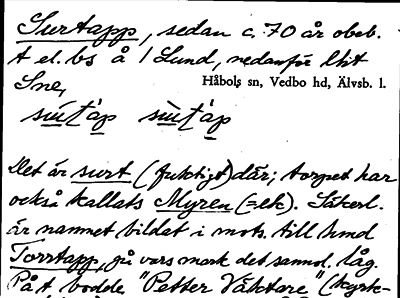 Surtapp, sedan c. 70 år obeb.
t el. bs å / Lund, nedanför lht
Sne,
Håbols sn, Vedbo hd, Älvsb. l.
Det är surt (fuktigt) där; torpet har
också kallats Myren (=ek). Säkerl.
är namnet bildat i mots. till hmd
Torrtapp, på vars mark det sannol. låg.
På t. bodde "Petter Väktare" (kyrk-